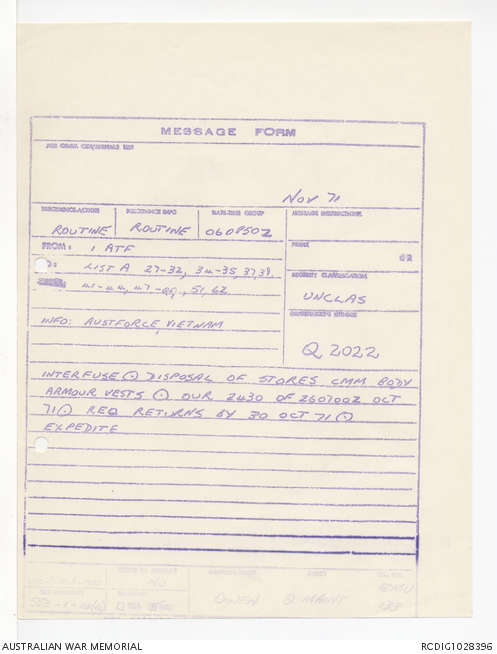 MESSAGE FORM
Nov 71
PRECEDENCE-ACTION
PRECEDENCE INFO
DATE-TIME GROUP
MESSAGE INSTRUCTIONS
ROUTINE
ROUTINE
060850Z
FROM: 1 ATF
LIST A 27-32, 34-35, 37,38,
SECURITY CLASSIFICATION
UNCLAS
INFO: AUSTFORCE VIETNAM
Q 2022
INTERFUSE (.) DISPOSAL OF STORES CMM BODY
ARMOUR VESTS (.) OUR 2430 OF 260700Z OCT
71 (.) REQ RETURNS BY 30 OCT 71 (.)
EXPEDITE
OWEN
Q MAINT
AUSTRALIAN WAR MEMORIAL
RCDIG1028396